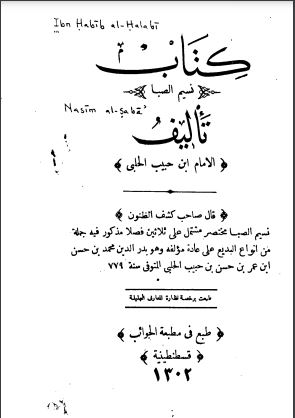 Ibn Ḥabīb al-Ḥalabī
كتاب
نسيم الصبا
Nasīm al-Ṣabā'
تأليف
﴿ الامام ابن حبيب الحلبى ﴾
﴿ قال صاحب كشف الظنون ﴾
نسيم الصبا مختصر مشتمل على ثلاثين فصلا مذكور فيه جملة
من انواع البديع على عادة مؤلفه وهو بدر الدين محمد بن حسن
ابن عمر بن حسن بن حبيب الحلبى المتوفى سنة ٧٧٩
طبعت برخصة نظارة المعارف الجليلة
﴿ طبع فى مطبعة الجوائب ﴾
﴿ قسطنطينية ﴾
١٣٠٢